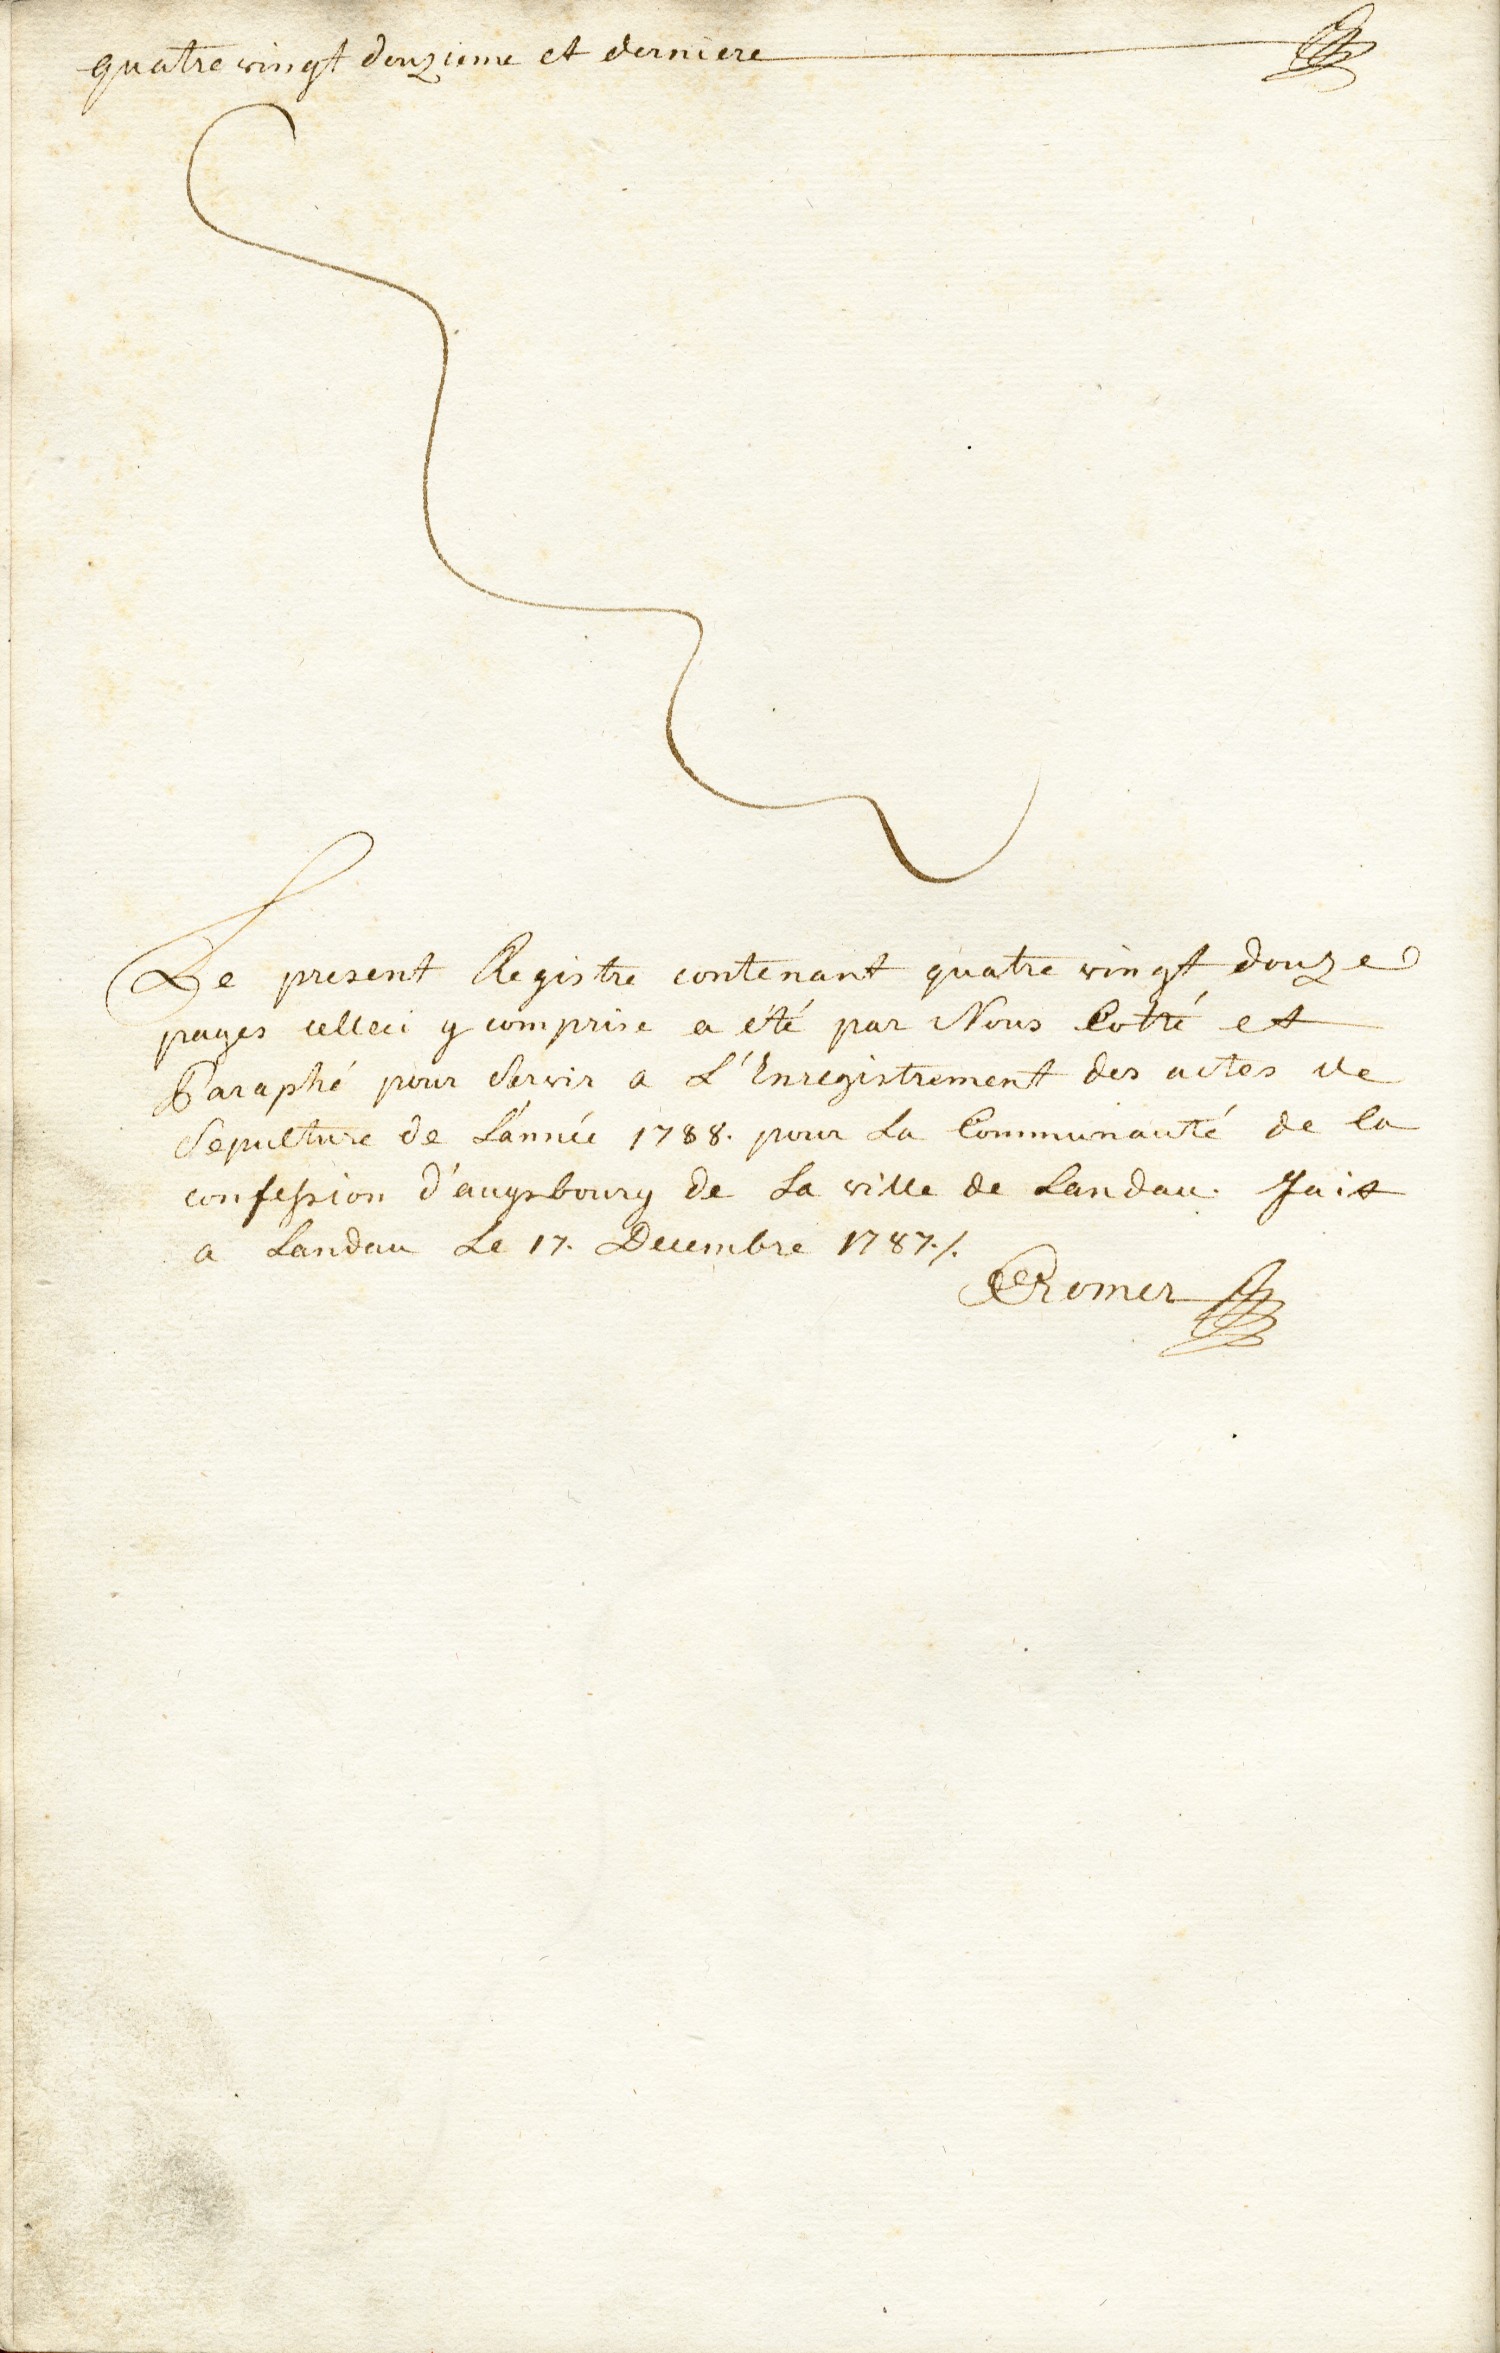 quatre vingt douzieme et derniere
Le present Registre contenant quatre vingt douze
pages celleci y comprise a été par Nous Cotté et
Paraphé pour Servir a L'Enregistrement des actes de
Sepulture de L'année 1788. pour La Communauté de la
confession d'augsbourg de La ville de Landau. fait
a Landau Le 17. Decembre 1787./.
Romer